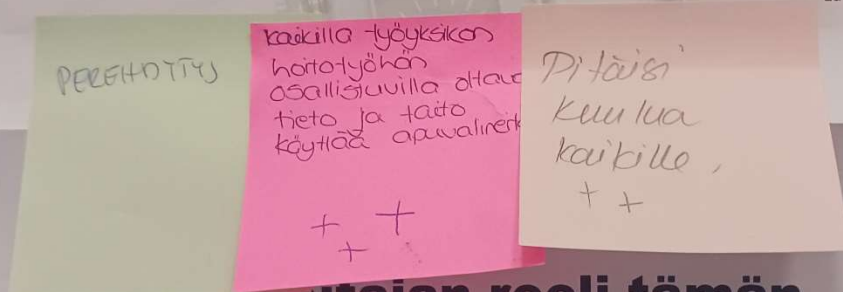 PEREHDYTYS
kaikilla työyksikön
hoitotyöhön
osallistuvilla oltava
tieto ja taito
käyttää apuvälineit
+ + +
Pitäisi
kuulua
kaikille.
+ +
roolj tämän